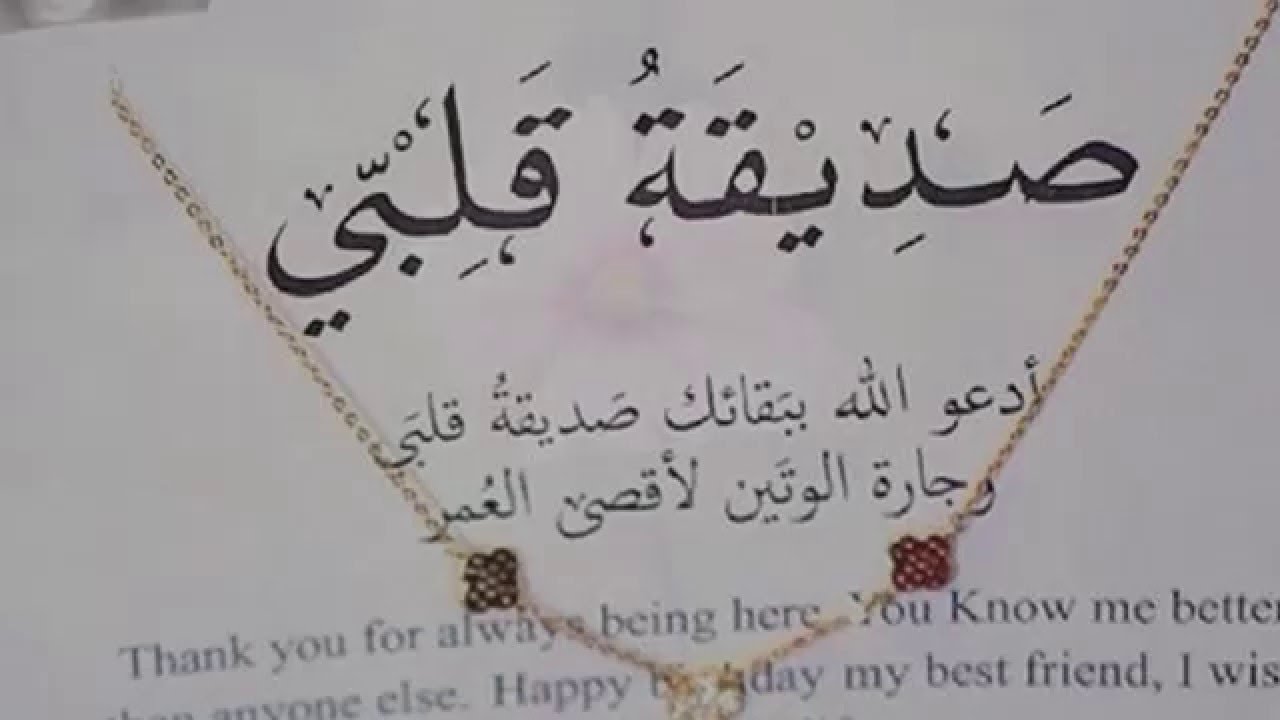 صَدِيْقَةُ قَلِبْي
أدعو الله ببَقائك صَديقةُ قلبَي
وجارة الوتَين لأقصى العُمر
Thank you for always being here. You Know me better
than anyone else. Happy birthday my best friend, I wis